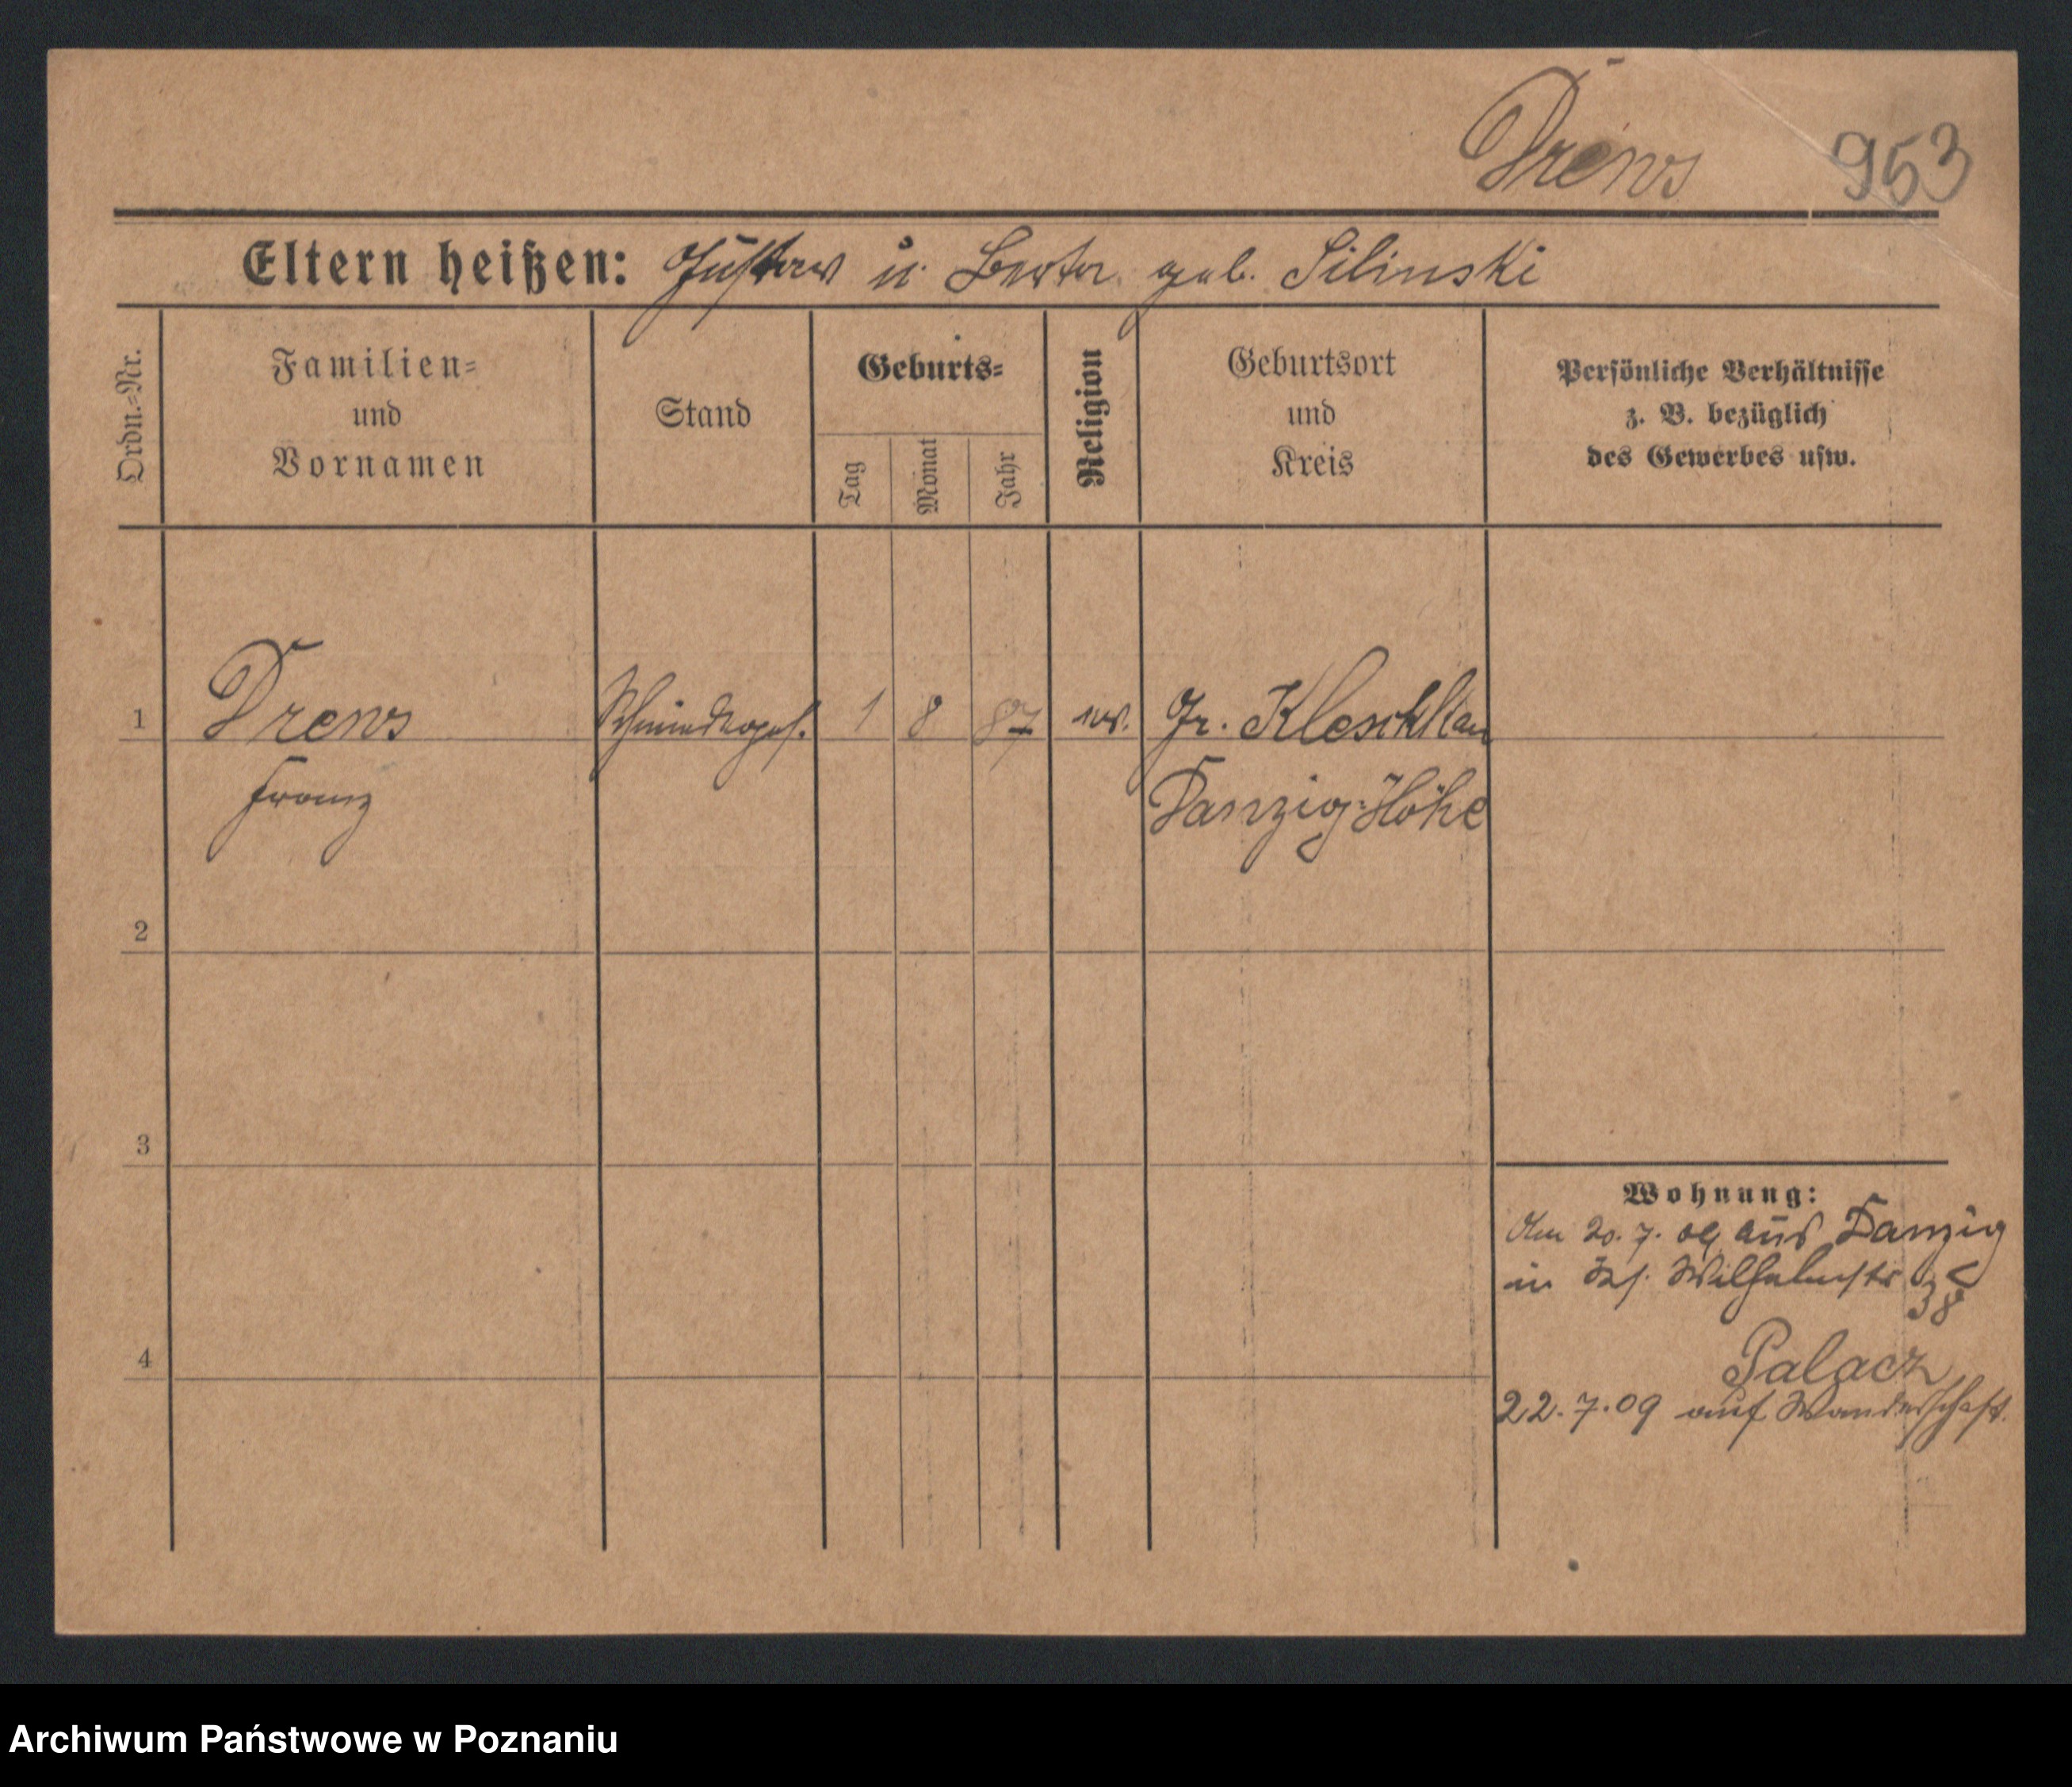 Drews 953
Eltern heißen: Gustav u. Berta geb. Silinski
Ordn.=Nr.
Familien=
und
Vornamen
Stand
Geburts=
Tag
Monat
Jahr
Religion
Geburtsort
und
Kreis
Persönliche Verhältnisse
z. B. bezüglich
des Gewerbes usw.
1 Drews Schmiedeges. 1 8 87 ev. Gr. Kleschkau
Franz Danzig=Höhe
2
3
4
Wohnung:
Am 20. 7. 09 aus Danzig
in Wilhelmstr 38
Palacz
22.7.09 auf Wanderschaft.
Archiwum Państwowe w Poznaniu